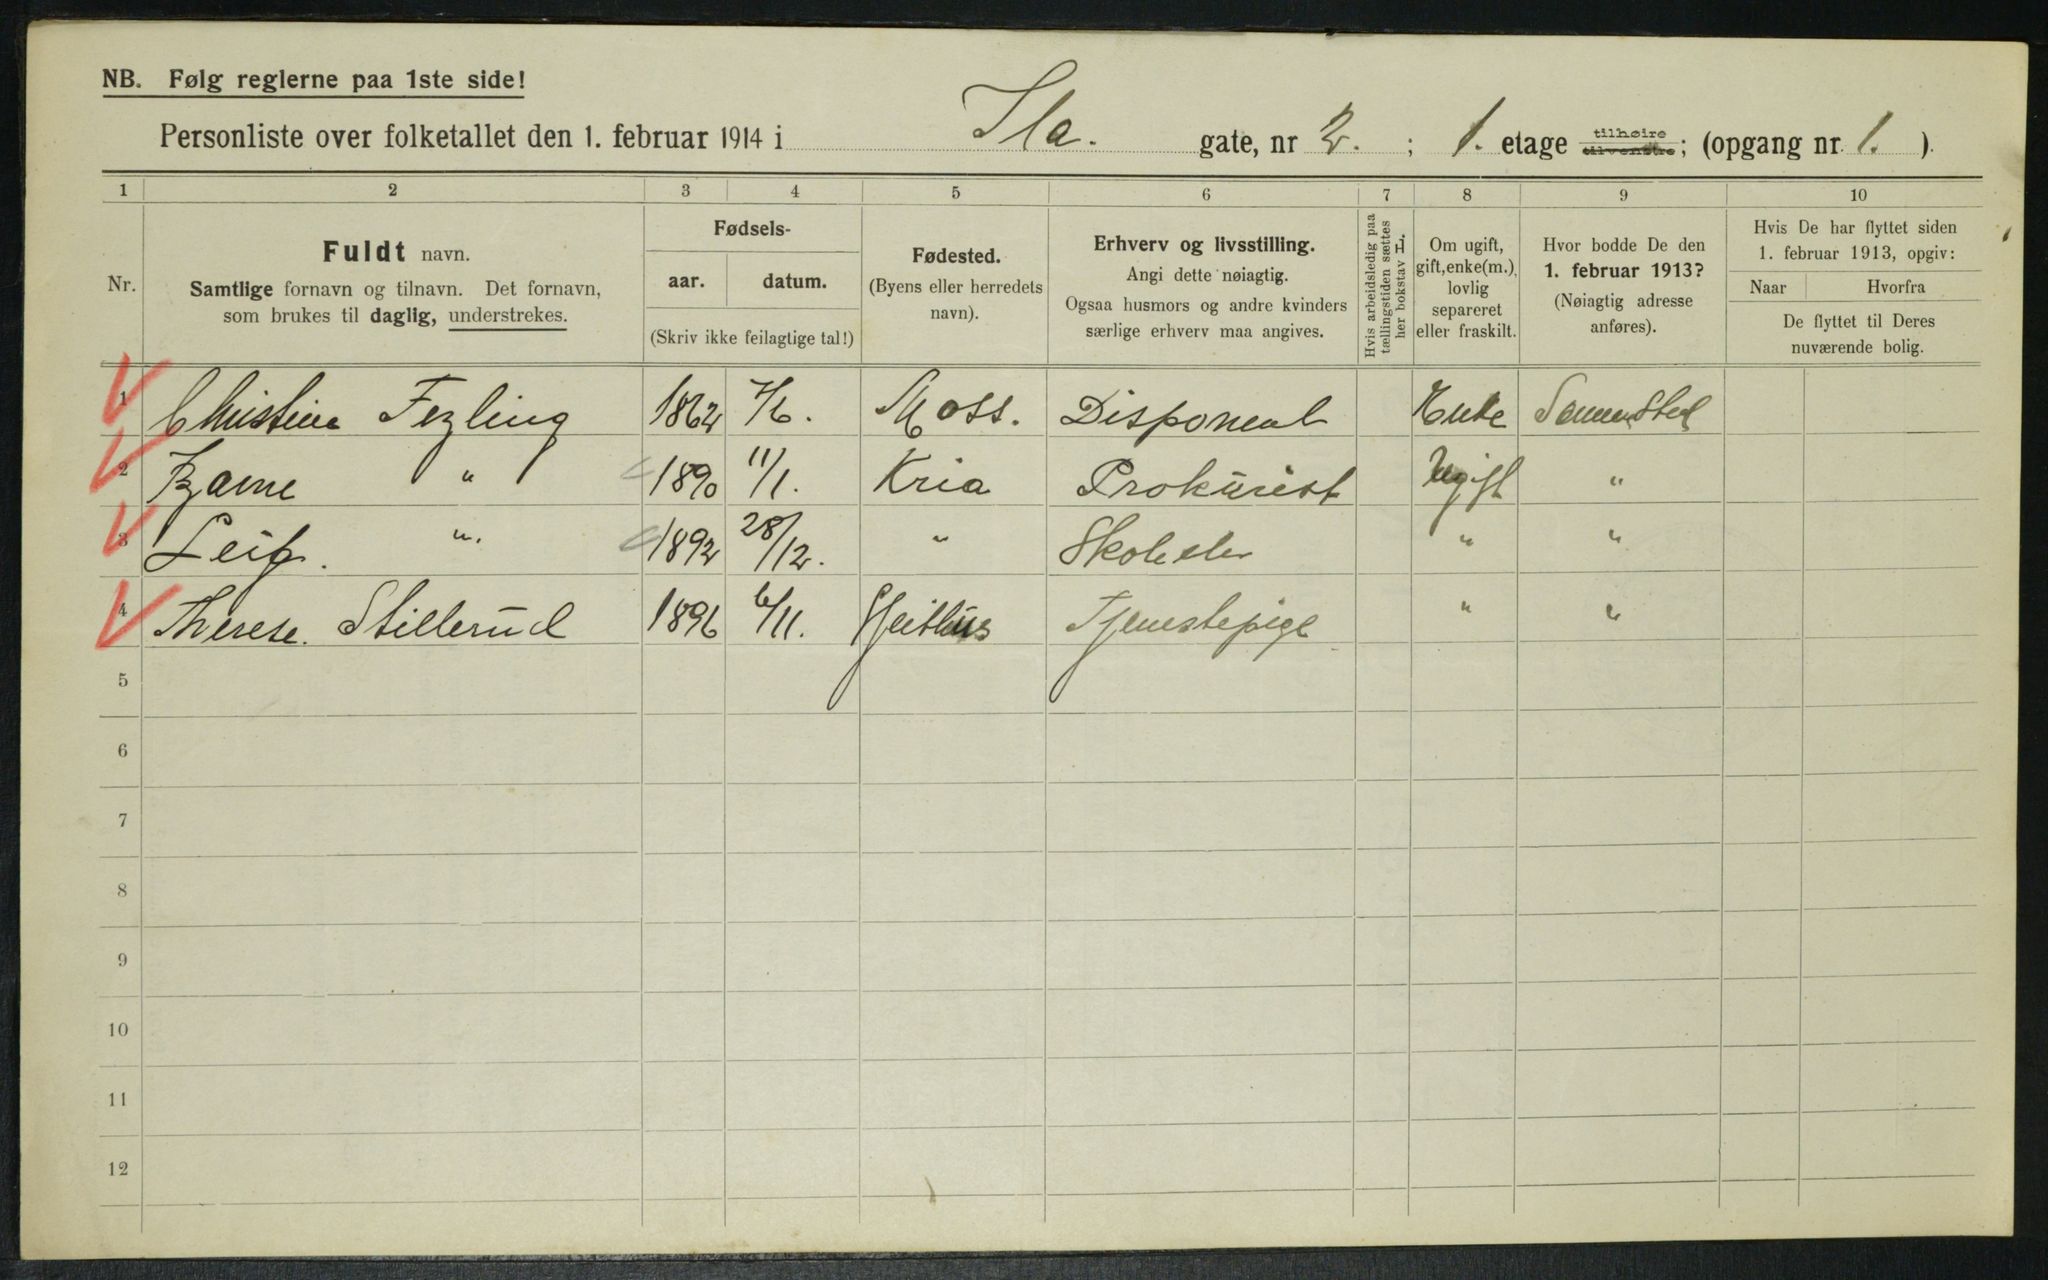 NB. Følg reglerne paa 1ste side!
Personliste over folketallet den 1. februar 1914 i Ila. gate, nr 2. ; 1. etage tilhøire tilvenstre; (opgang nr. 1. ).
1 2 3 4 5 6 7 8 9 10
Nr.
Fuldt navn.
Samtlige fornavn og tilnavn. Det fornavn,
som brukes til daglig, understrekes.
Fødsels-
aar. datum.
(Skriv ikke feilagtige tal!)
Fødested.
(Byens eller herredets
navn).
Erhverv og livsstilling.
Angi dette nøiagtig.
Ogsaa husmors og andre kvinders
særlige erhverv maa angives.
Hvis arbeidsledig paa
tællingstiden sættes
her bokstav L.
Om ugift,
gift, enke(m.),
lovlig
separeret
eller fraskilt.
Hvor bodde De den
1. februar 1913?
(Nøiagtig adresse
anføres).
Hvis De har flyttet siden
1. februar 1913, opgiv:
Naar Hvorfra
De flyttet til Deres
nuværende bolig.
1 Christine Fezling 1862 7/6. Moss. Disponent Enke Sammested
2 Bjarne " 1890 11/1. Kria Prokurist Ugift "
3 Leif. " 1892 28/12. " Skoleelev " "
4 Therese. Stillerud 1896 6/11. Geithus Tjenestepige " "
5
6
7
8
9
10
11
12